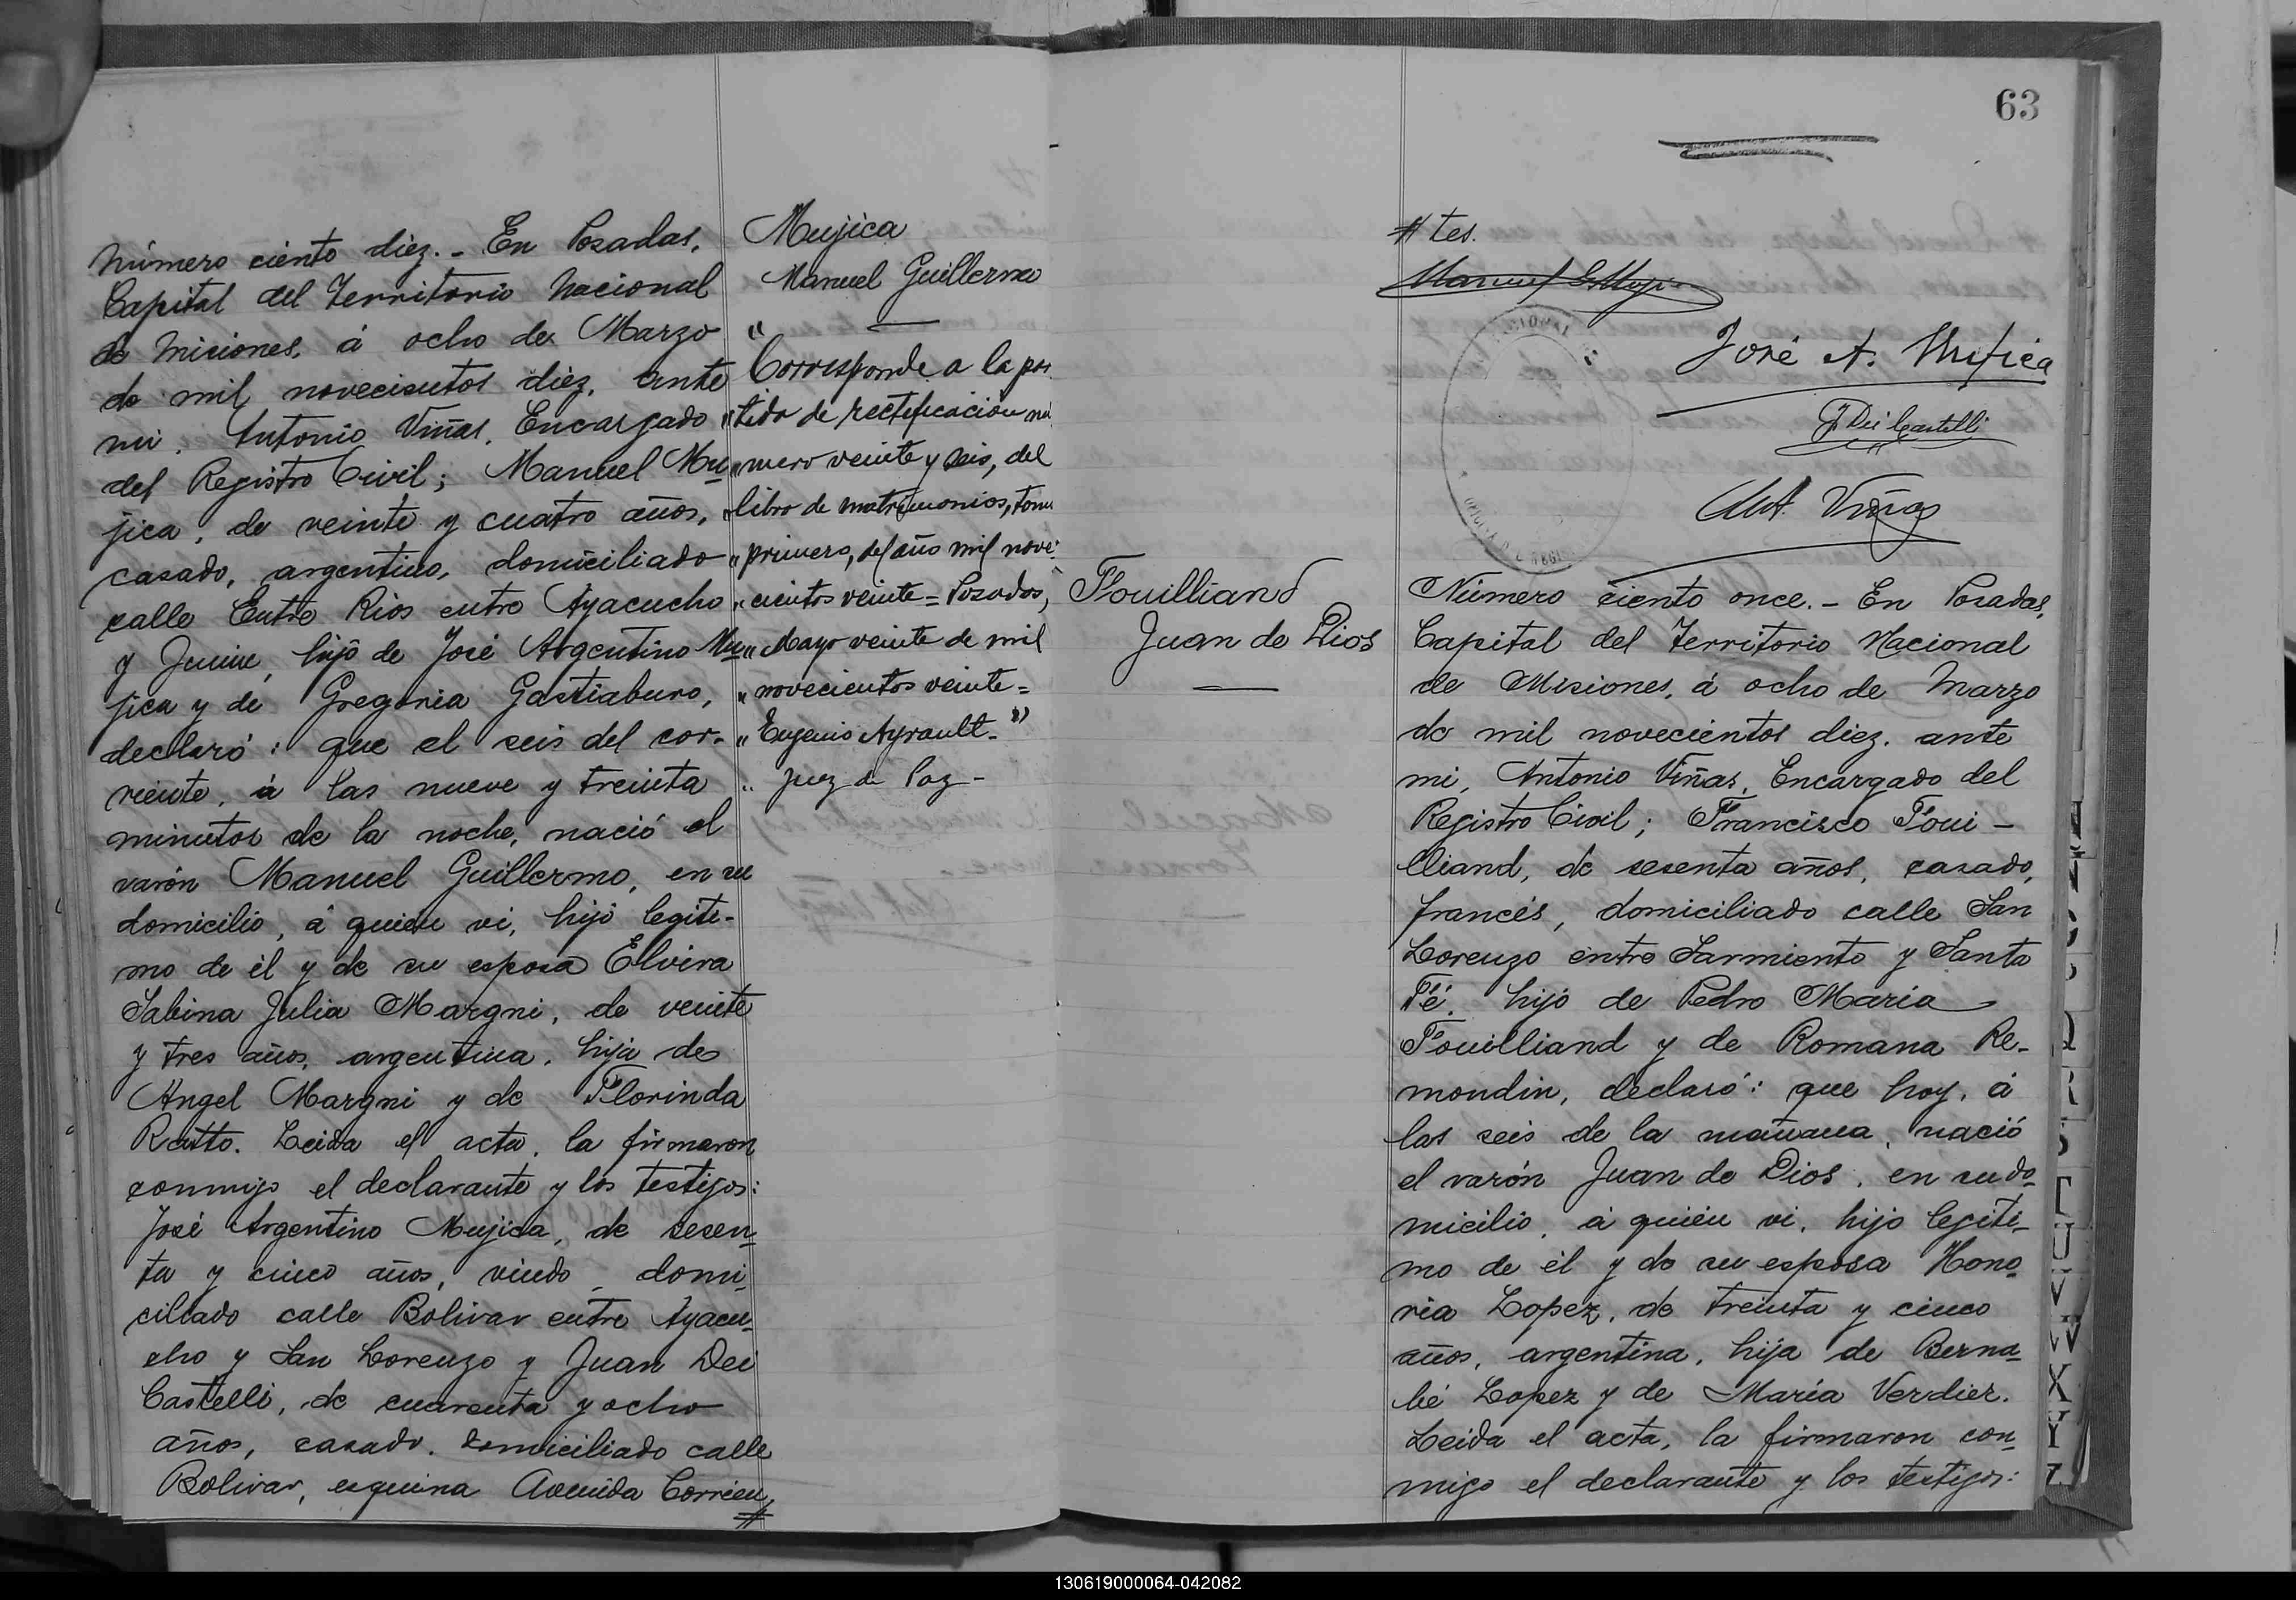 Número ciento diez. - En Posadas,
Capital del Territorio Nacional
de Misiones, á ocho de Marzo
de mil novecientos diez, ante
mi, Antonio Viñas, Encargado
del Registro Civil; Manuel Mu
jica, de veinte y cuatro años,
casado, argentino, domiciliado
calle Entre Rios entre Ayacucho
y Junin, hijo de José Argentino Mu
jica y de Gregoria Gastiaburo,
declaró: que el seis del cor-
riente, á las nueve y treinta
minutos de la noche, nació el
varón Manuel Guillermo, en su
domicilio, á quien vi, hijo legiti-
mo de él y de su esposa Elvira
Sabina Julia Margni, de veinte
y tres años, argentina, hija de
Angel Margni y de Florinda
Ratto. Leida el acta, la firmaron
conmigo el declarante y los testigos:
José Argentino Mujica, de sesen-
ta y cinco años, viudo, domi-
ciliado calle Bolivar entre Ayacu-
cho y San Lorenzo y Juan Dei
Castelli, de cuarenta y ocho
años, casado, domiciliado calle
Bolivar, esquina Avenida Corrien
#
Mujica
Manuel Guillermo
"
Corresponde a la par
"tida de rectificación nú
"mero veinte y seis, del
"libro de matrimonios, tomo
"primero, del año mil nove-
"cientos veinte = Posadas,
"Mayo veinte de mil
"novecientos veinte =
"Eugenio Ayrault - "
" Juez de Paz -
63
# tes.
Manuel G. Muji
José A. Mujica
J. Dei Castelli
Ant. Viñas
Fouilliand
Juan de Dios
Número ciento once. - En Posadas,
Capital del Territorio Nacional
de Misiones, á ocho de Marzo
de mil novecientos diez, ante
mi, Antonio Viñas, Encargado del
Registro Civil; Francisco Foui -
lliand, de sesenta años, casado,
francés, domiciliado calle San
Lorenzo entre Sarmiento y Santa
Fé, hijo de Pedro Maria
Fouilliand y de Romana Re-
mondin, declaró: que hoy, á
las seis de la mañana, nació
el varón Juan de Dios, en su do-
micilio, á quien vi, hijo legiti-
mo de él y de su esposa Hono-
ria Lopez, de treinta y cinco
años, argentina, hija de Berna-
bé Lopez y de Maria Verdier.
Leida el acta, la firmaron con-
migo el declarante y los testigos:
130619000064-042082